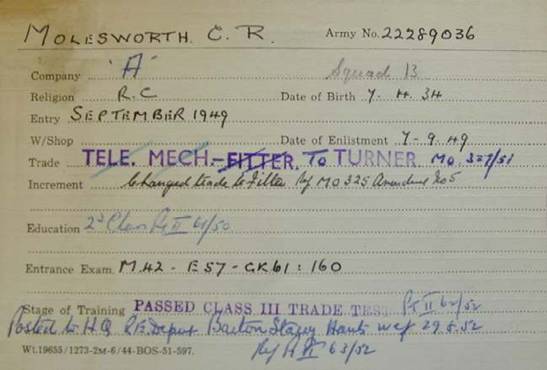 MOLESWORTH. C. R. Army No. 22289036
Company 'A' Squad B
Religion R.C Date of Birth 7. 4. 34
Entry SEPTEMBER 1949
W/Shop Date of Enlistment 7-9-49
Trade TELE. MECH.-FITTER. To TURNER. MO 327/51
Increment Changed trade to Fitter Ref MO 325 Amendment No 5
Education 2d Class Pt II 61/50
Entrance Exam. M.42 - E57 - GK61 : 160
Stage of Training PASSED CLASS III TRADE TEST Pt II 62/52
Posted to H.Q R.E. Depot Barton Stacey Hants wef 29.5.52
Wt.19655/1273-2M-6/44-BOS-51-597. Ref Pt II 63/52